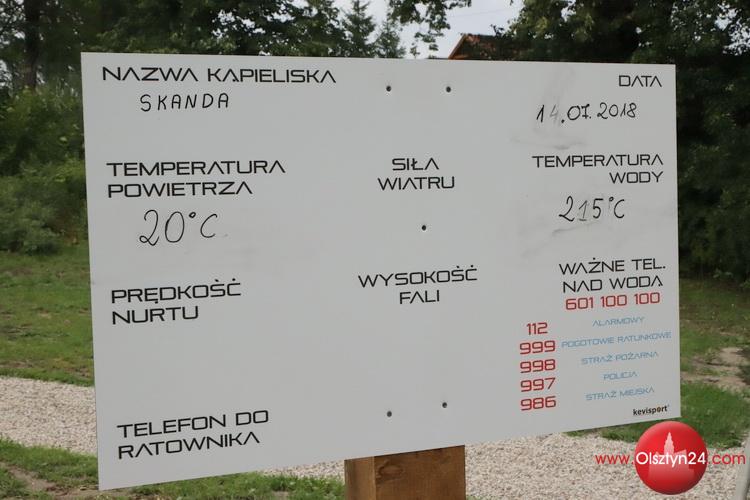 NAZWA KAPIELISKA
SKANDA
DATA
14.07.2018
TEMPERATURA
POWIETRZA
20°C
SIŁA
WIATRU
TEMPERATURA
WODY
215°C
PRĘDKOŚĆ
NURTU
WYSOKOŚĆ
FALI
WAŻNE TEL.
NAD WODA
601 100 100
112 ALARMOWY
999 POGOTOWIE RATUNKOWE
998 STRAŻ POŻARNA
997 POLICJA
986 STRAŻ MIEJSKA
TELEFON DO
RATOWNIKA
kevisport
www.Olsztyn24.com